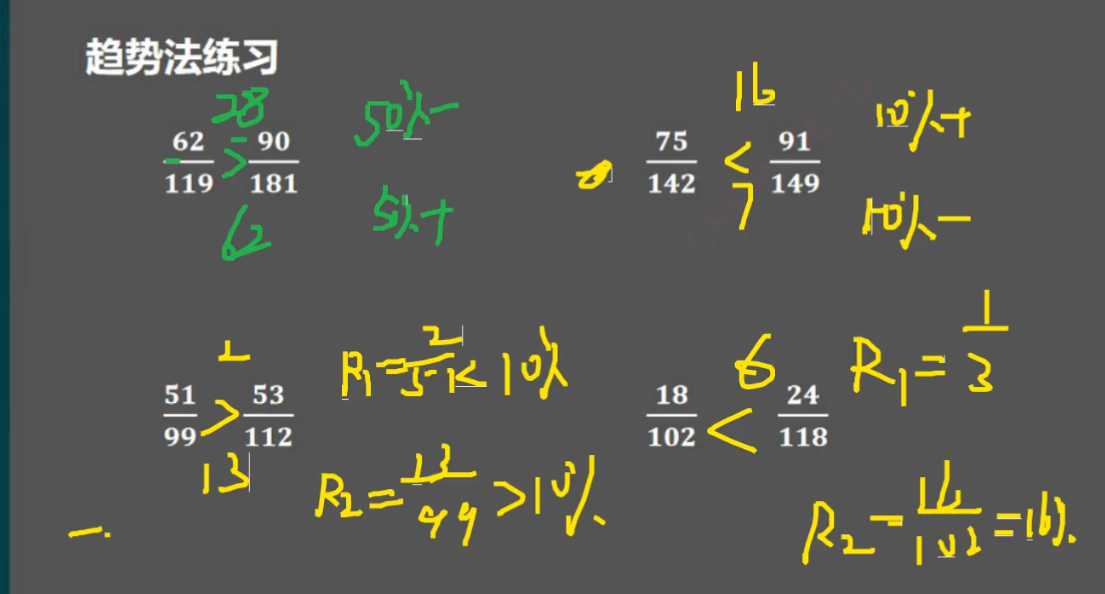 趋势法练习
28
62/119 > 90/181
62
50%-
5%+
16
75/142 < 91/149
7
10%+
10%-
2
51/99 > 53/112
13
R₁=2/51<10%
R₂=13/99>10%
6
18/102 < 24/118
R₁=1/3
R₂=16/102=16%